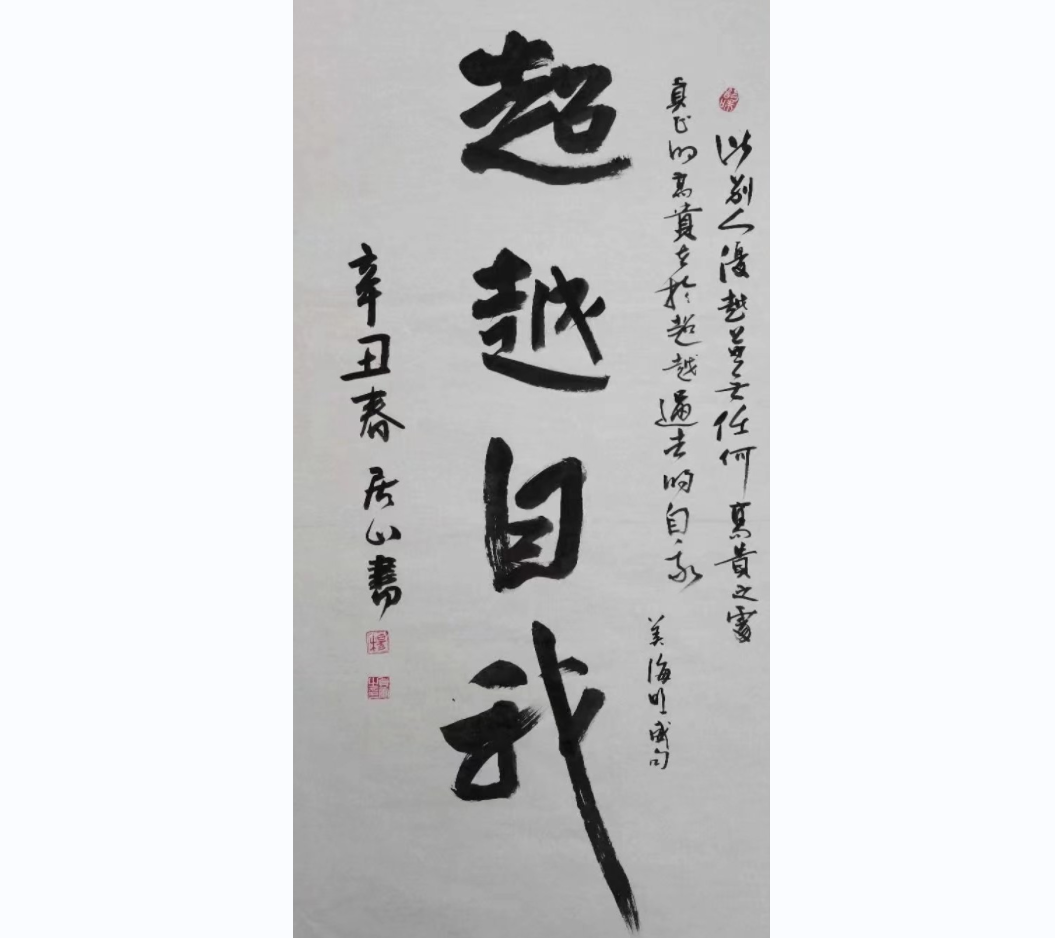 比别人優越並無任何高貴之處
真正的高貴在於超越過去的自我
美海明威句
超越自我
辛丑春居山書